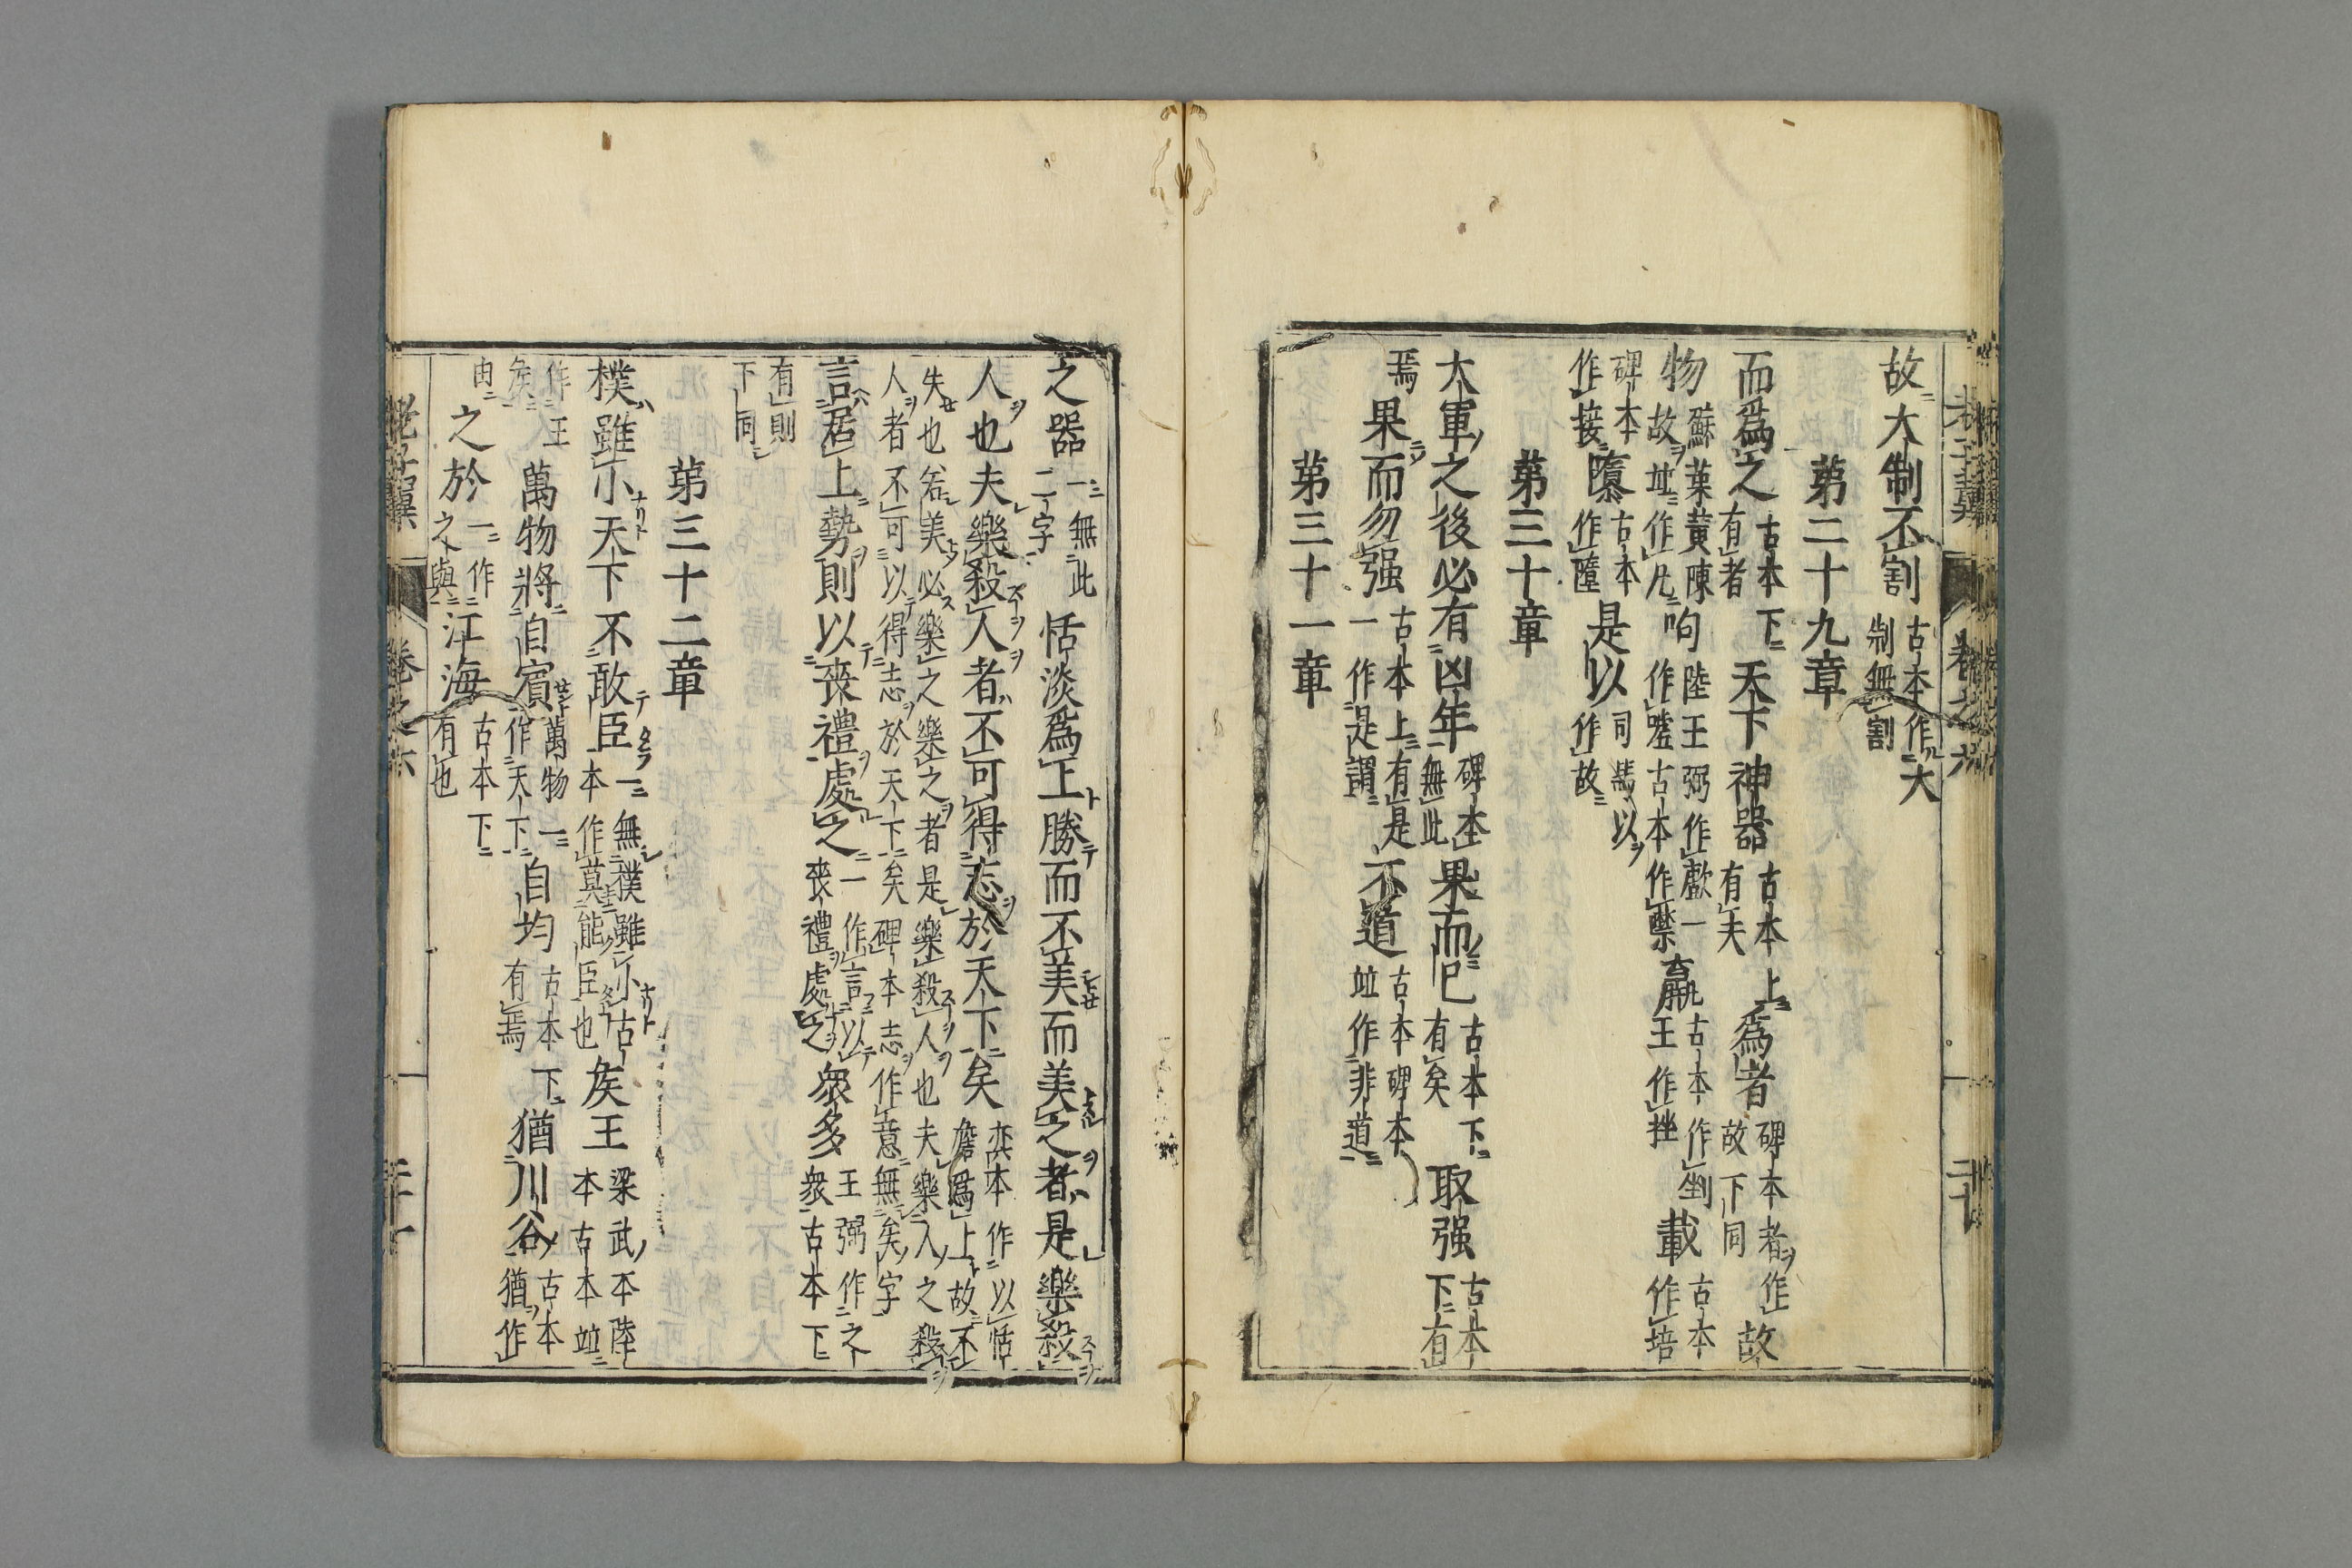 故大制不割古本作大制無割
第二十九章
而爲之古本下有者天下神器古本上有夫爲者碑本者作故下同故
物蘇葉黄陳故竝作凡呴陸王弼作歔一作噓古本作㗲羸古本作剉王作挫載古本作培
碑本作接隳古本作墮是以司馬以作故
第三十章
大軍之後必有凶年碑本無此果而已古本下有矣取强古本下有
焉果而勿强古本上有是一作是謂不道古本碑本竝作非道
第三十一章
之器一無此二字恬淡爲上勝而不美而美之者是樂殺
人也夫樂殺人者不可得志於天下矣奕本作以恬憺爲上故不
失也若美必樂之樂之者是樂殺人也夫樂人之殺
人者不可以得志於天下矣碑本志作意無矣字
言居上勢則以喪禮處之一作言以喪禮處之衆多王弼作之衆古本下
有則下同
第三十二章
樸雖小天下不敢臣一無樸雖小古本作莫能臣也矦王梁武本陸本古本竝
作王矦萬物將自賓萬物一作天下自均古本下有焉猶川谷古本猶作
由之於一作之與江海古本下有也
老子翼 卷之六